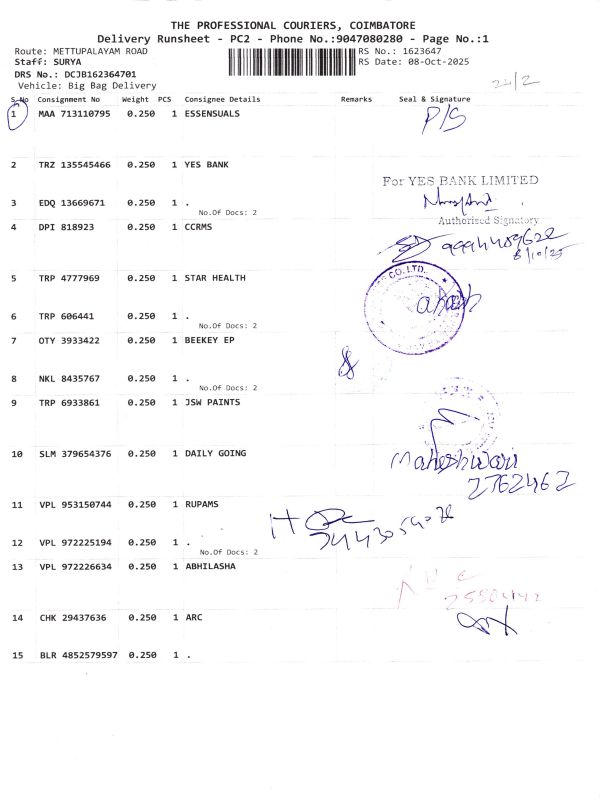 THE PROFESSIONAL COURIERS, COIMBATORE
Delivery Runsheet - PC2 - Phone No.:9047080280 - Page No.:1
Route: METTUPALAYAM ROAD RS No.: 1623647
Staff: SURYA RS Date: 08-Oct-2025
DRS No.: DCJB162364701
Vehicle: Big Bag Delivery
S.No Consignment No Weight PCS Consignee Details Remarks Seal & Signature
1 MAA 713110795 0.250 1 ESSENSUALS P/S
2 TRZ 135545466 0.250 1 YES BANK
For YES BANK LIMITED
3 EDQ 13669671 0.250 1 .
No.Of Docs: 2
Authorised Signatory
4 DPI 818923 0.250 1 CCRMS
8/10/25
5 TRP 4777969 0.250 1 STAR HEALTH
CO. LTD.
6 TRP 606441 0.250 1 .
No.Of Docs: 2
7 OTY 3933422 0.250 1 BEEKEY EP
8 NKL 8435767 0.250 1 .
No.Of Docs: 2
9 TRP 6933861 0.250 1 JSW PAINTS
10 SLM 379654376 0.250 1 DAILY GOING
Maheshwari
2762462
11 VPL 953150744 0.250 1 RUPAMS
12 VPL 972225194 0.250 1 .
No.Of Docs: 2
13 VPL 972226634 0.250 1 ABHILASHA
14 CHK 29437636 0.250 1 ARC
15 BLR 4852579597 0.250 1 .